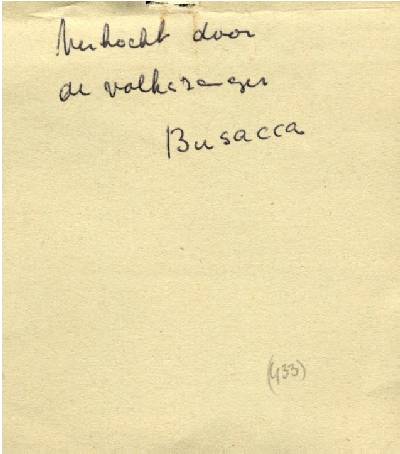 Verkocht door
de volkszanger
Busacca
(433)